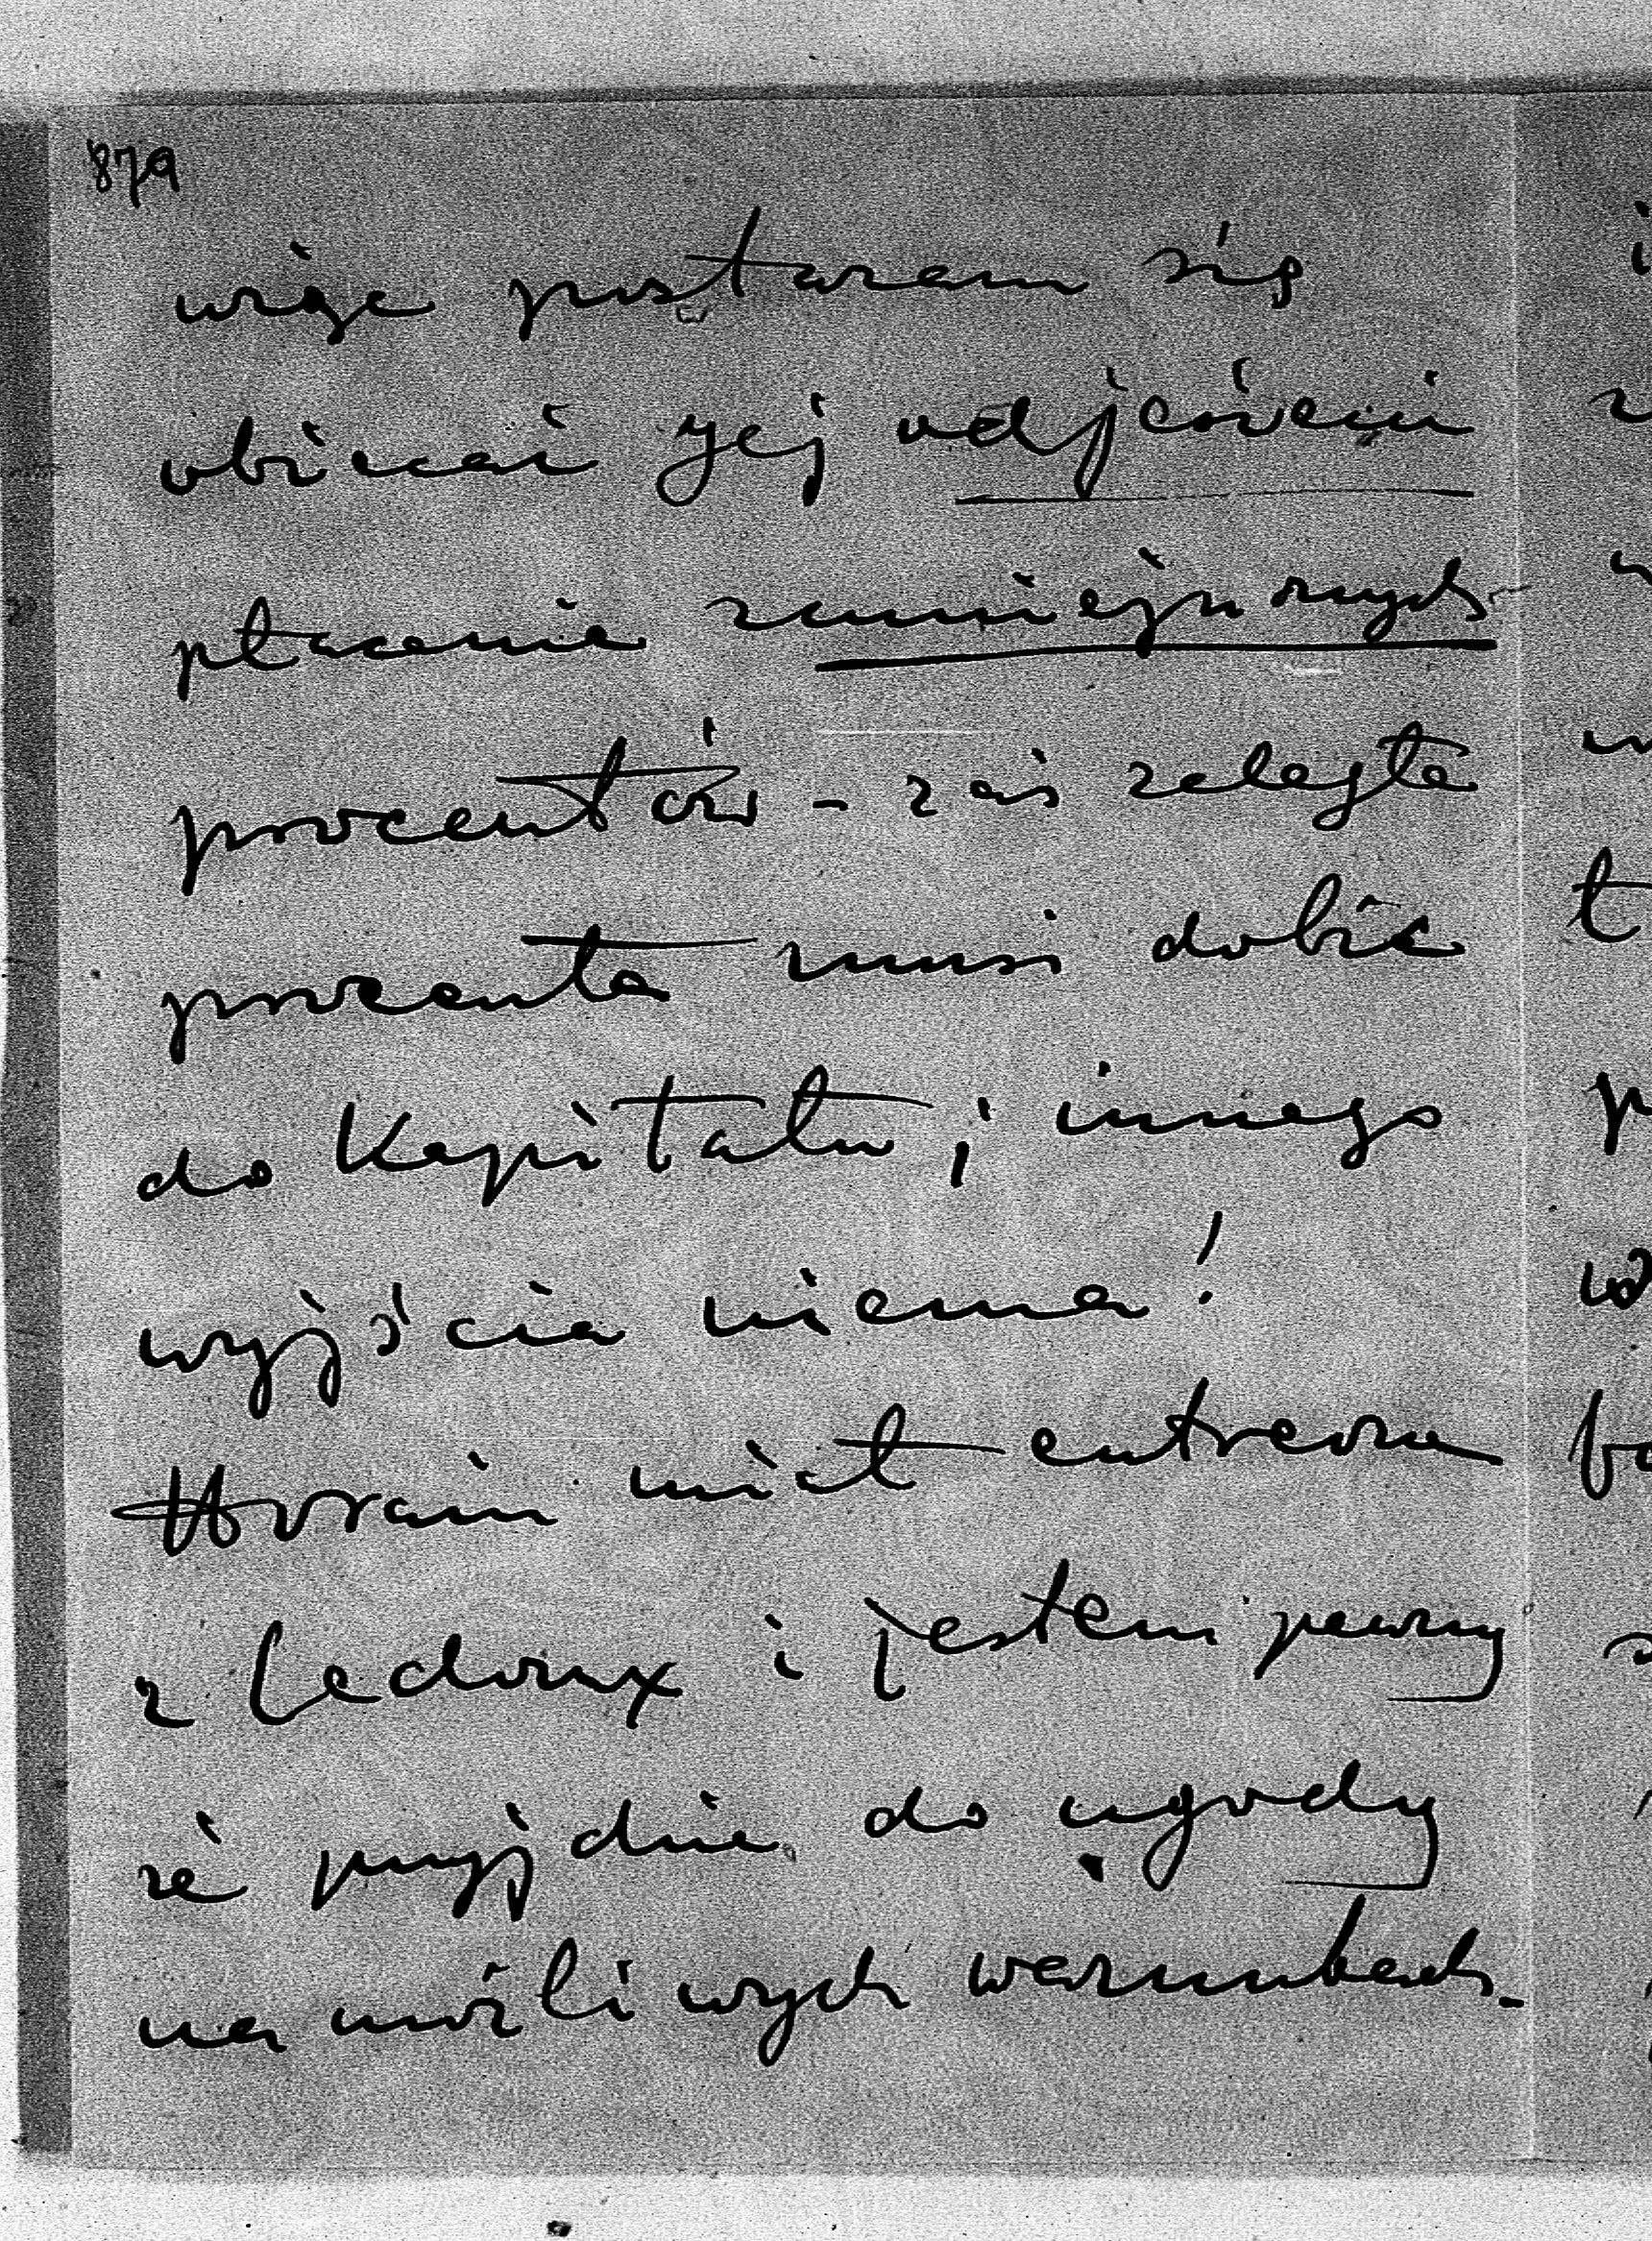 879
więc postaram się
obiecać jej od jesieni
płacenie zmniejszonych
procentów - zaś zaległe
procenta musi dobić
do Kapitału, innego
wyjścia niema!
Horain miał entrevue
z Ledoux i jestem pewny
że przyjdzie do ugody
na możliwych warunkach.